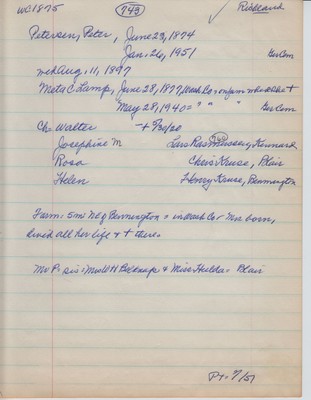 WC 1875
743
Richland
Petersen, Peter, June 23, 1874
Jan. 26, 1951 Ger Cem
wed Aug, 11, 1897
Meta C Lamp, June 28, 1877, Wash Co on farm where she +
May 28, 1940 = " " " Ger Cem
Ch. Walter
Josephine M Lars Rasmussen, Kennard
Rosa Chris Kruse, Blair
Helen Henry Kruse, Bennington
Farm: 5 m N of Bennington = in Wash Co - Mrs born,
lived all her life & + there.
Mr P. sis: Mrs W H & Miss Hulda = Blair
Pt. 7/51